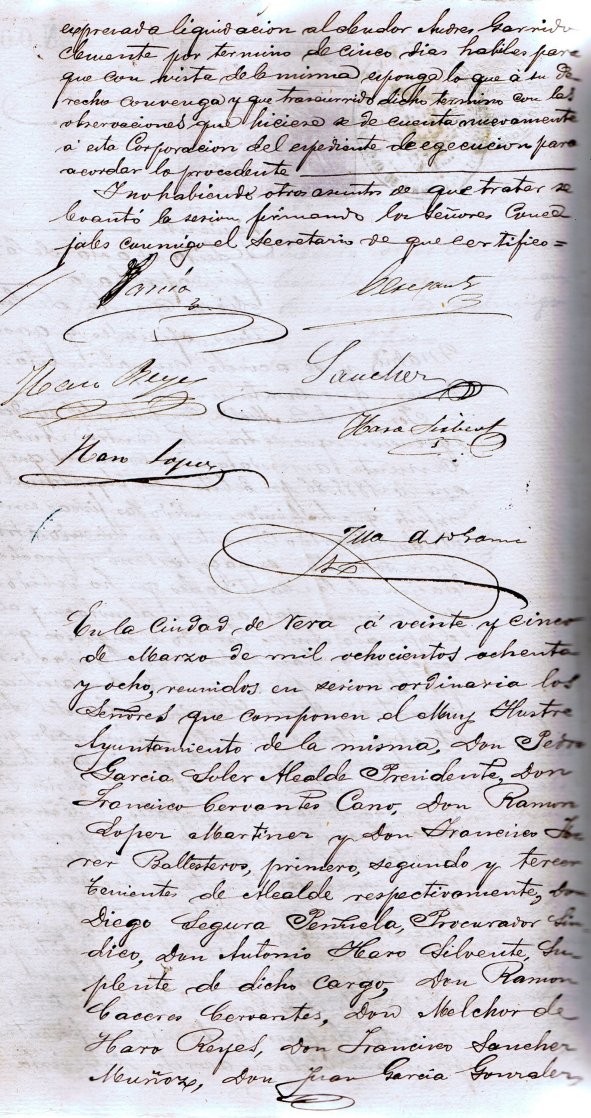 expresada liquidacion al deudor Andres Garrido
Clemente por termino de cinco dias habiles para
que con vista de la misma esponga lo que á su de
recho convenga y que trascurrido dicho termino con las
observaciones que hiciese se de cuenta nuevamente
á esta Corporacion del espediente de egecucion para
acordar lo procedente
I no habiendo otros asuntos de que tratar se
levantó la sesion, firmando los Señores Conce
jales conmigo el Secretario de que certifico=
Garcia
Cervantes
Haro Reyes
Sanchez
Haro Silvent
Haro Lopez
En la Ciudad de Vera á veinte y cinco
de Marzo de mil ochocientos ochenta
y ocho, reunidos en sesion ordinaria los
Señores que componen el Muy Ilustre
Ayuntamiento de la misma, Don Pedro
Garcia Soler Alcalde Presidente, Don
Francisco Cervantes Cano, Don Ramon
Lopez Martinez y Don Francisco Fe
rrer Ballesteros, primero, segundo y tercer
tenientes de Alcalde respectivamente, Don
Diego Segura Peñuela, Procurador Sin
dico, Don Antonio Haro Silvente, Su-
plente de dicho cargo, Don Ramon
Caceres Cervantes, Don Melchor de
Haro Reyes, Don Francisco Sanchez
Muñoz, Don Juan Garcia Gonzalez,